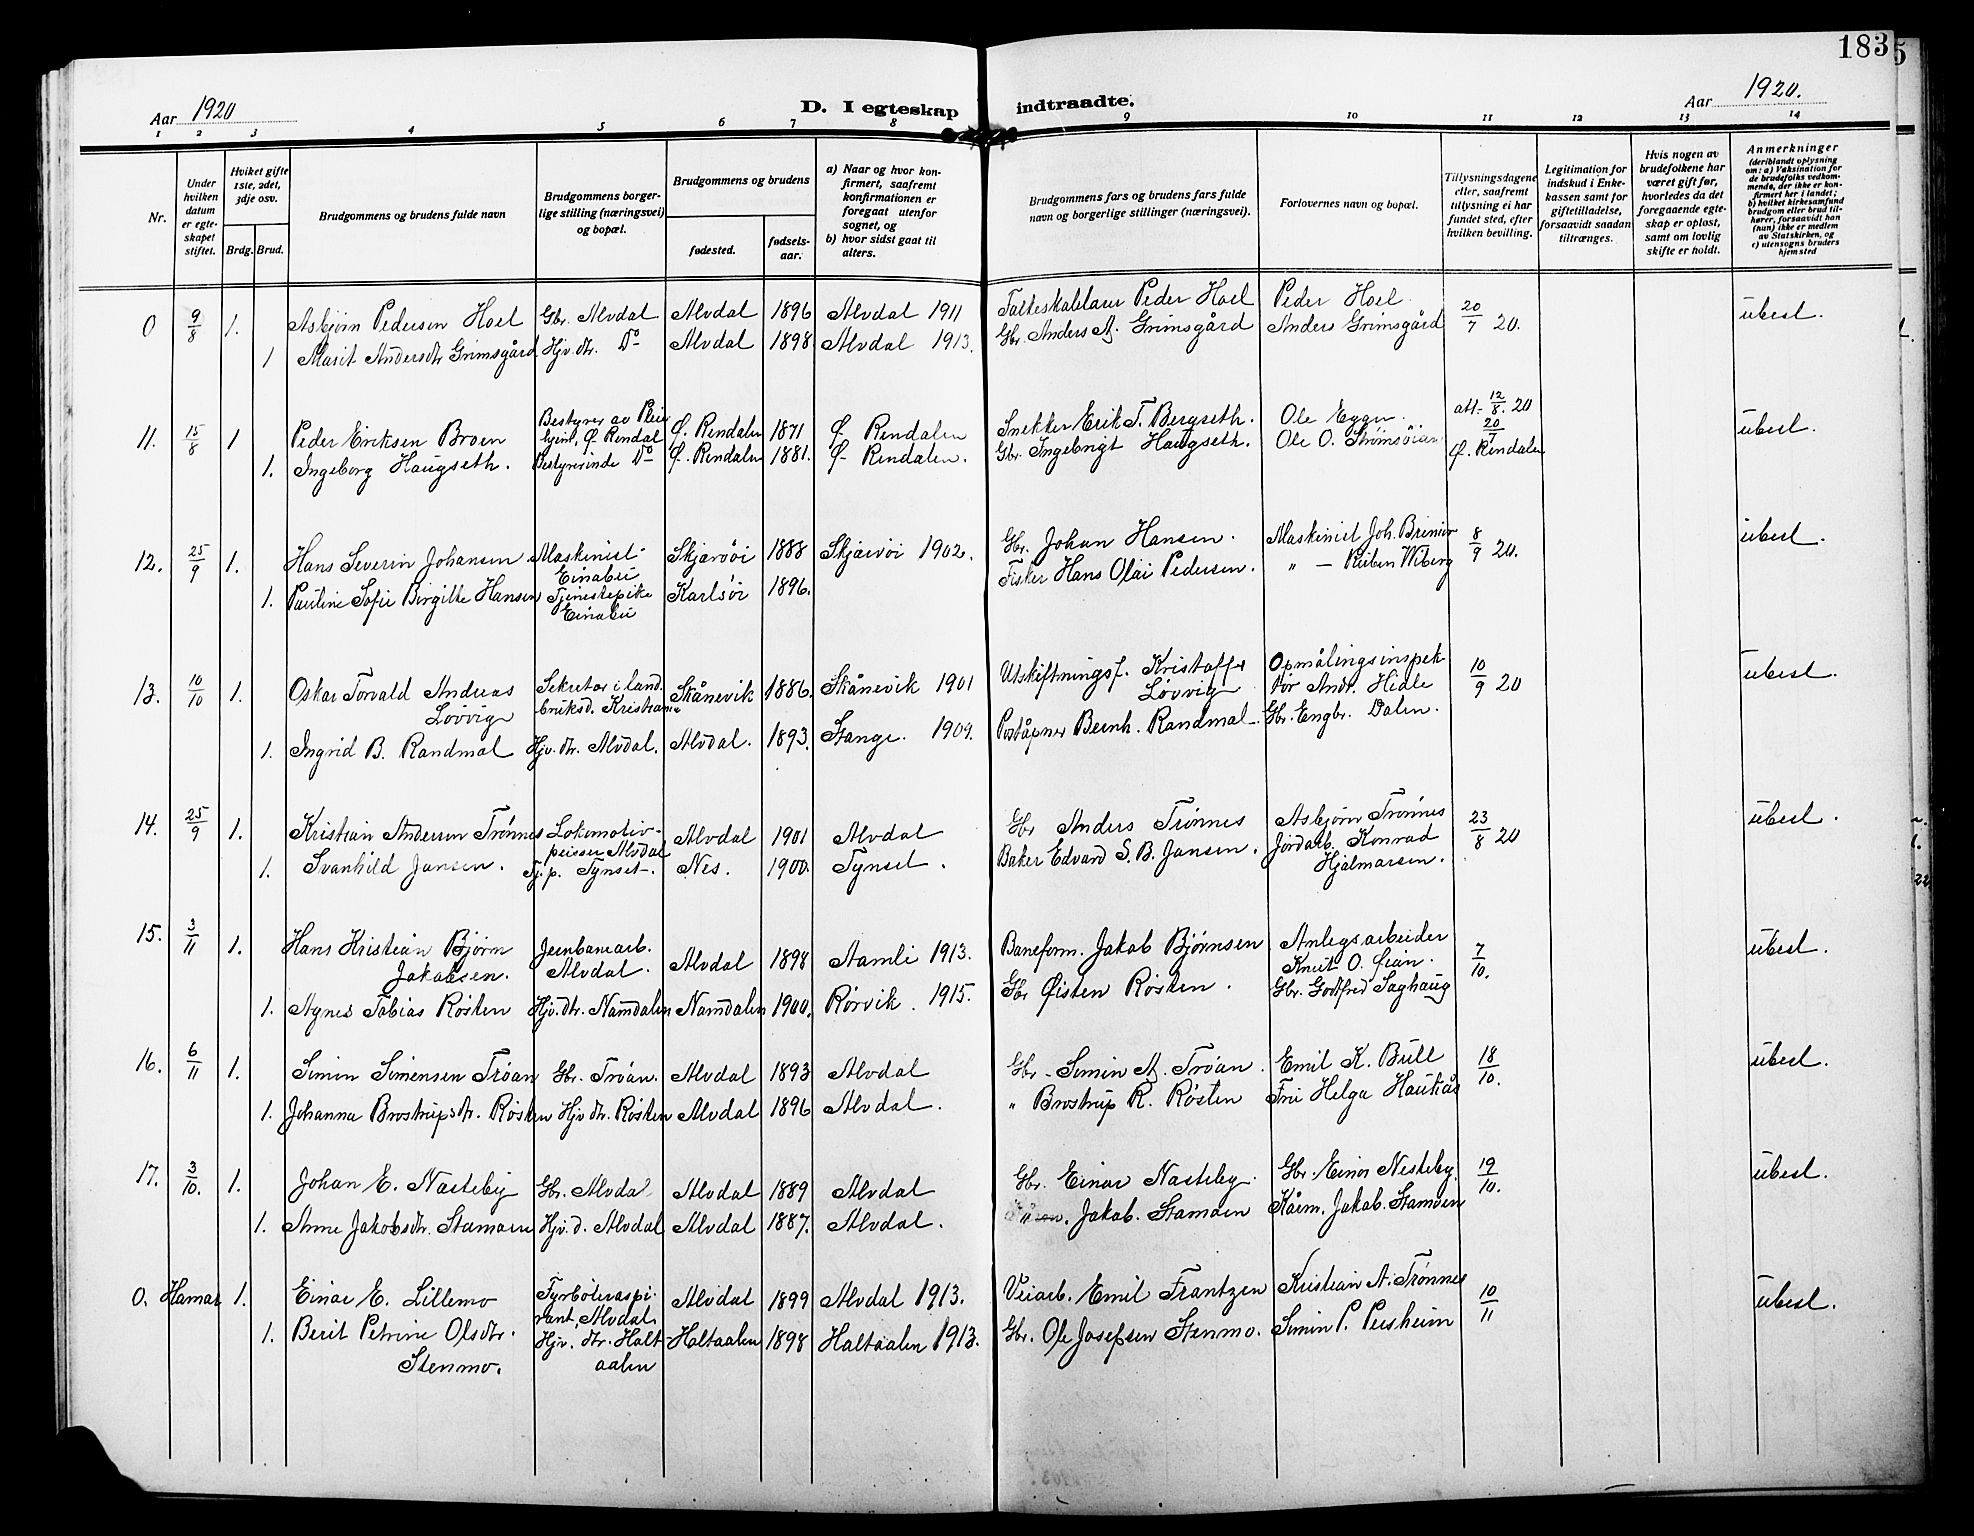 183
5
Aar 1920
D. I egteskap indtraadte.
Aar 1920.
1 2 3 4 5 6 7 8 9 10 11 12 13 14
Nr.
Under hvilken datum er egteskapet stiftet.
Hviket gifte 1ste, 2det, 3dje osv.
Brdg. Brud.
Brudgommens og brudens fulde navn
Brudgommens borgerlige stilling (næringsvei) og bopæl.
Brudgommens og brudens
fødested.
fødselsaar.
a) Naar og hvor konfirmert, saafremt konfirmationen er foregaat utenfor sognet, og
b) hvor sidst gaat til alters.
Brudgommens fars og brudens fars fulde navn og borgerlige stillinger (næringsvei).
Forlovernes navn og bopæl.
Tillysningsdagene eller, saafremt tillysning ei har fundet sted, efter hvilken bevilling.
Legitimation for indskud i Enkekassen samt for giftetilladelse, forsaavidt saadan tiltrænges.
Hvis nogen av brudefolkene har været gift før, hvorledes da det foregaaende egteskap er opløst, samt om lovlig skifte er holdt.
Anmerkninger
(deriblandt oplysning om: a) Vaksination for de brudefolks vedkommende, der ikke er konfirmert her i landet; b) hvilket kirkesamfund brudgom eller brud tilhører, forsaavidt han (hun) ikke er medlem av Statskirken, og c) utensogns bruders hjemsted
0 9/8 1. Asbjørn Pedersen Hoel Gbr. Alvdal Alvdal 1896 Alvdal 1911 Peder Hoel Peder Hoel 20/7 20. ubesl.
1 Marit Andersdtr Grimsgård Hjv. dtr. Do Alvdal 1898 Alvdal 1913. Gbr. Anders A. Grimsgård Anders Grimsgård
11. 15/8 1 Peder Eriksen Broen Bestyrer av Pleie
hjent, Ø. Rendal Ø. Rendalen 1871 Ø Rendalen Snekker Erik T. Bergseth. Ole Eggen. att. 12/8. 20 ubesl.
1. Ingeborg Haugseth. Bestyrerinde Do Ø. Rendalen 1881. Ø- Rendalen. Gbr. Ingebrigt Haugseth. Ole O. Strømsøian 20/7
Ø. Rendalen
12. 25/9 1. Hans Severin Johansen Maskinist
Einabu Skjærvøi 1888 Skjærvøi 1902. Gbr. Johan Hansen. Maskinist Joh. 8/9 20. ubesl.
1. Pauline Sofie Birgitte Hansen Tjenestepike
Einabu Karlsøi 1896. Fisker Hans Olai Pedersen. " — Ruben Wiberg
13. 10/10 1. Oskar Torvald Andreas
Løvvig Sekretær i land.
bruksd. Kristiania Skånevik 1886. Skånevik 1901 Utskiftningsf. Kristoffer
Løvvig Opmålingsinspek
tør Andr. Hidle 10/9 20 ubesl.
1. Ingrid B. Randmæl Hjv. dtr. Alvdal. Alvdal. 1893. Stange. 1909. Poståpner Bernh. Randmæl. Gbr. Engbr. Dalen.
14. 25/9 1. Kristian Andersen Trønnes Lokomotiv-
pusser Alvdal Alvdal 1901 Alvdal Gbr Anders Trønnes Asbjørn Trønnes 23/8 20 ubesl.
1. Svanhild Jansen. Tj.p. Tynset. Nes. 1900. Tynset. Baker Edvard S. B. Jansen. Jordarb. Konrad
Hjalmarsen.
15. 3/11 1. Hans Kristian Bjørn
Jakobsen. Jernbanearb.
Alvdal. Alvdal 1898 Aamli 1913. Baneform. Jakob Bjørnsen Anlegsarbeider
Knut O. Øian. 7/10. ubesl.
1. Agnes Tobias Røsten Hjv. dtr. Namdalen Namdalen 1900. Rørvik. 1915. Gbr Øisten Røsten. Gbr. Godtfred Saghaug
16. 6/11 1. Simen Simensen Trøan Gbr. Trøan. Alvdal 1893 Alvdal Gbr. Simen M. Trøan. Emil K. Bull 18/10. ubesl.
1. Johanna Brostrupsdtr. Røsten Hjv dtr. Røsten Alvdal 1896 Alvdal. " Brostrup R. Røsten Fru Helga Haukås
17. 3/10. 1. Johan E. Næsteby Gbr. Alvdal Alvdal 1889 Alvdal Gbr. Einar Næsteby. Gbr. Einar Nesteby. 19/10. ubesl.
1. Anne Jakobsdtr. Stamoen Hjv. d. Alvdal Alvdal 1887. Alvdal. Jakob. Stamoen Kårm. Jakob. Stamoen
0. Hamar 1. Einar E. Lillemo Fyrbøteraspi-
rant, Alvdal Alvdal 1899 Alvdal 1913. Veiarb. Emil Frantzen Kristian A. Trønnes 10/11 ubesl.
1. Berit Petrine Olsdtr.
Stenmo. Hjv. dtr. Halt
aalen Haltaalen 1898 Haltaalen 1913. Gbr. Ole Josefsen Stenmo. Simen P.